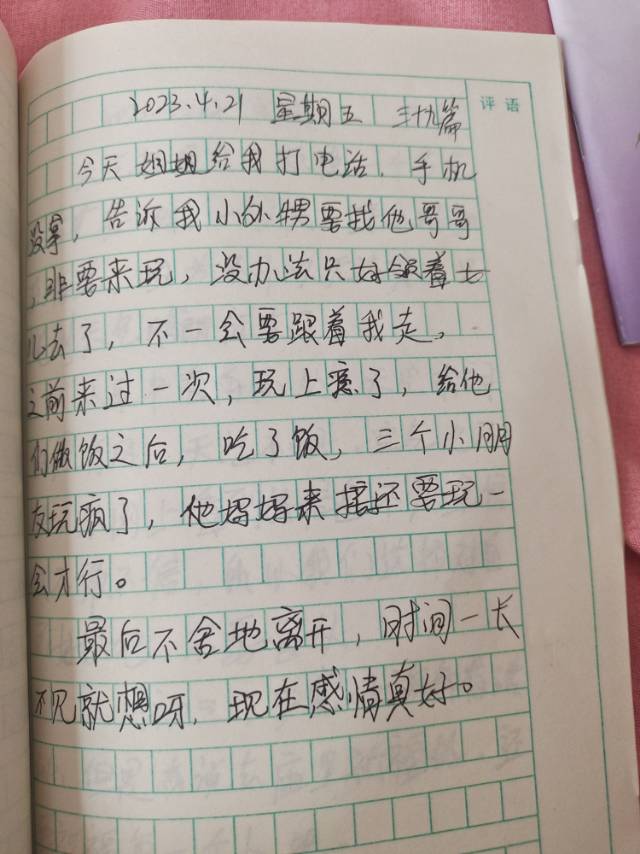 评语
2023.4.21 星期五 三十九篇
今天姐姐给我打电话.手机
没拿，告诉我小外甥要找他哥哥
，非要来玩，没办法只好领着女
儿去了，不一会要跟着我走，
之前来过一次，玩上瘾了，给他
们做饭之后，吃了饭，三个小朋
友玩疯了，他妈妈来接还要玩一
会才行。
最后不舍地离开，时间一长
不见就想呀，现在感情真好。